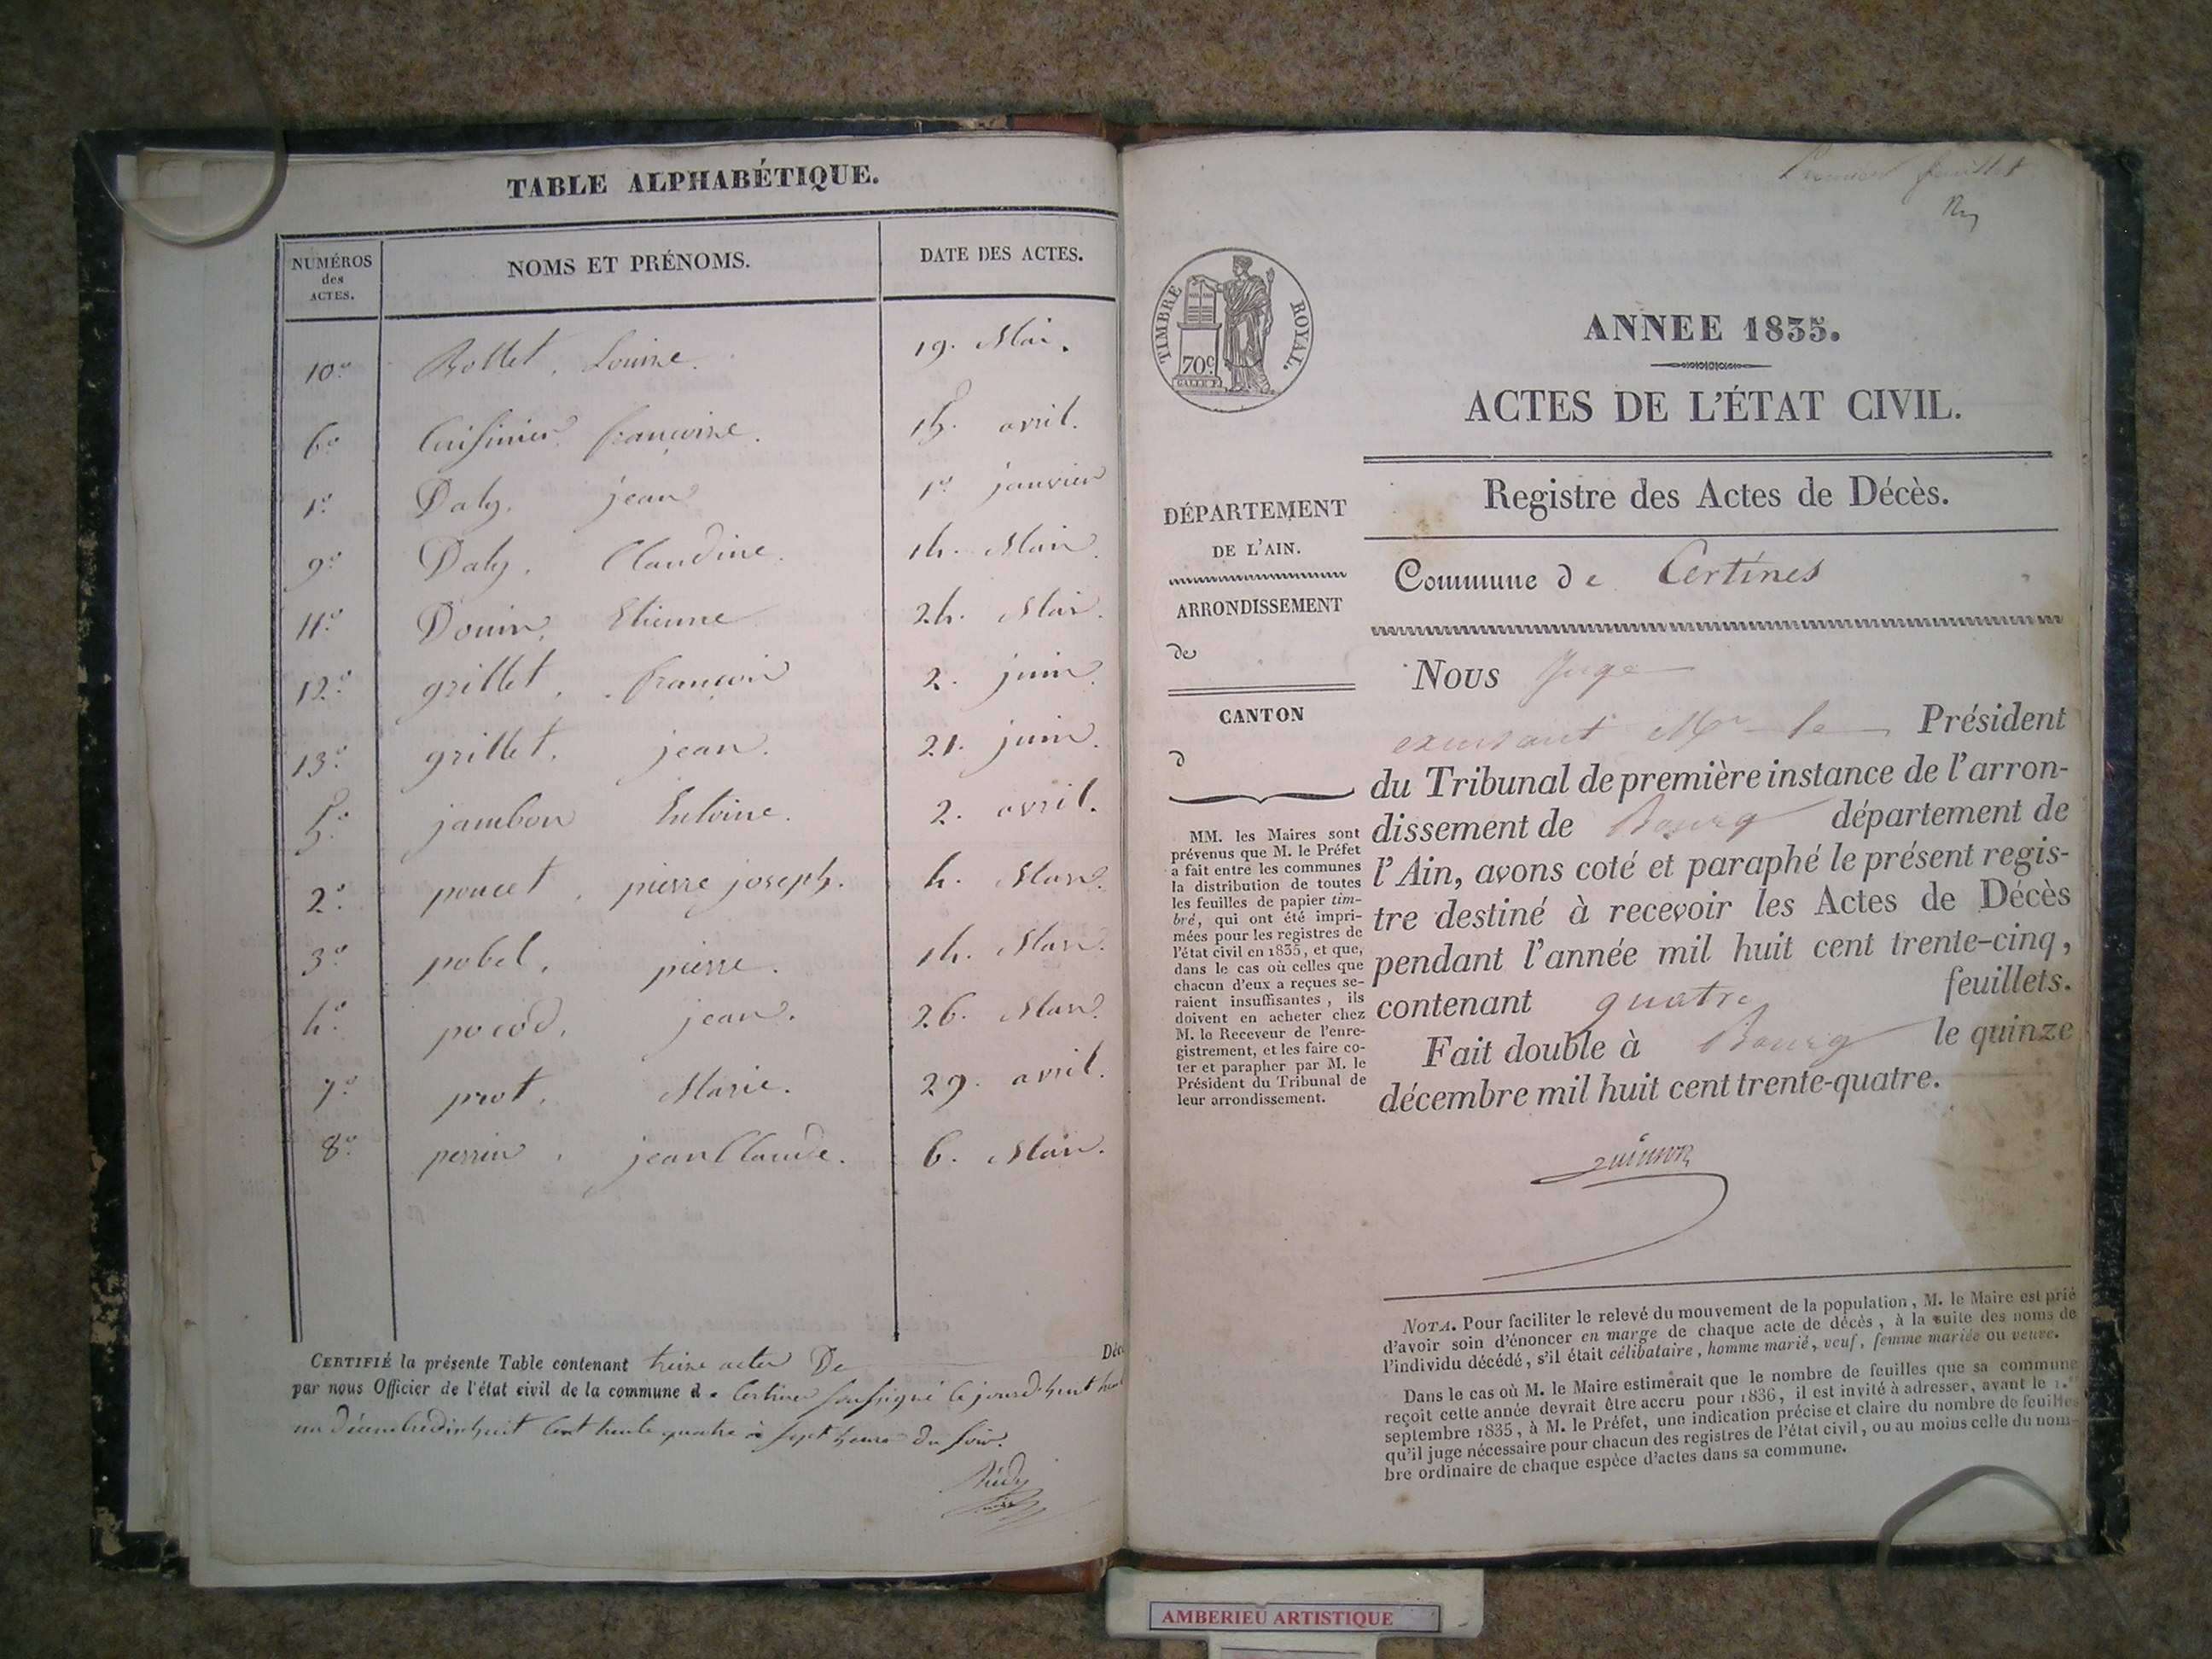 TABLE ALPHABÉTIQUE.
NUMÉROS des ACTES.
NOMS ET PRÉNOMS.
DATE DES ACTES.
10° Bollet, Louise. 19. Mai.
6° Cuisinier françoise. 15. avril.
1° Daly, jean 1er janvier
9° Daly, Claudine. 14. Mai.
11° Douin, Etienne 24. Mai.
12° grillet, françois 2. juin.
13° grillet, jean. 21. juin.
5° jambon Antoine. 2. avril.
2° poncet, pierre joseph. 4. Mars.
3° pobel, pierre. 14. Mars.
4° pocod, jean. 26. Mars.
7° prot, Marie. 29. avril.
8° perrin, jean Claude. 6. Mai.
CERTIFIÉ la présente Table contenant treize actes De Déc
par nous Officier de l'état civil de la commune de Certines soussigné le jourd'huit
un Décembre dix huit Cent trente quatre à sept heures du soir.
Premier feuillet
TIMBRE ROYAL.
70c
ANNEE 1835.
ACTES DE L'ÉTAT CIVIL.
Registre des Actes de Décès.
DÉPARTEMENT
DE L'AIN.
ARRONDISSEMENT
de
CANTON
d
MM. les Maires sont
prévenus que M. le Préfet
a fait entre les communes
la distribution de toutes
les feuilles de papier tim-
bré, qui ont été impri-
mées pour les registres de
l'état civil en 1835, et que,
dans le cas où celles que
chacun d'eux a reçues se-
raient insuffisantes, ils
doivent en acheter chez
M. le Receveur de l'enre-
gistrement, et les faire co-
ter et parapher par M. le
Président du Tribunal de
leur arrondissement.
Commune de Certines
Nous Juge
exerçant Mr le Président
du Tribunal de première instance de l'arron-
dissement de Bourg département de
l'Ain, avons coté et paraphé le présent regis-
tre destiné à recevoir les Actes de Décès
pendant l'année mil huit cent trente-cinq,
contenant quatre feuillets.
Fait double à Bourg le quinze
décembre mil huit cent trente-quatre.
NOTA. Pour faciliter le relevé du mouvement de la population, M. le Maire est prié
d'avoir soin d'énoncer en marge de chaque acte de décès, à la suite des noms de
l'individu décédé, s'il était célibataire, homme marié, veuf, femme mariée ou veuve.
Dans le cas où M. le Maire estimerait que le nombre de feuilles que sa commune
reçoit cette année devrait être accru pour 1836, il est invité à adresser, avant le 1.er
septembre 1835, à M. le Préfet, une indication précise et claire du nombre de feuilles
qu'il juge nécessaire pour chacun des registres de l'état civil, ou au moins celle du nom-
bre ordinaire de chaque espèce d'actes dans sa commune.
AMBERIEU ARTISTIQUE